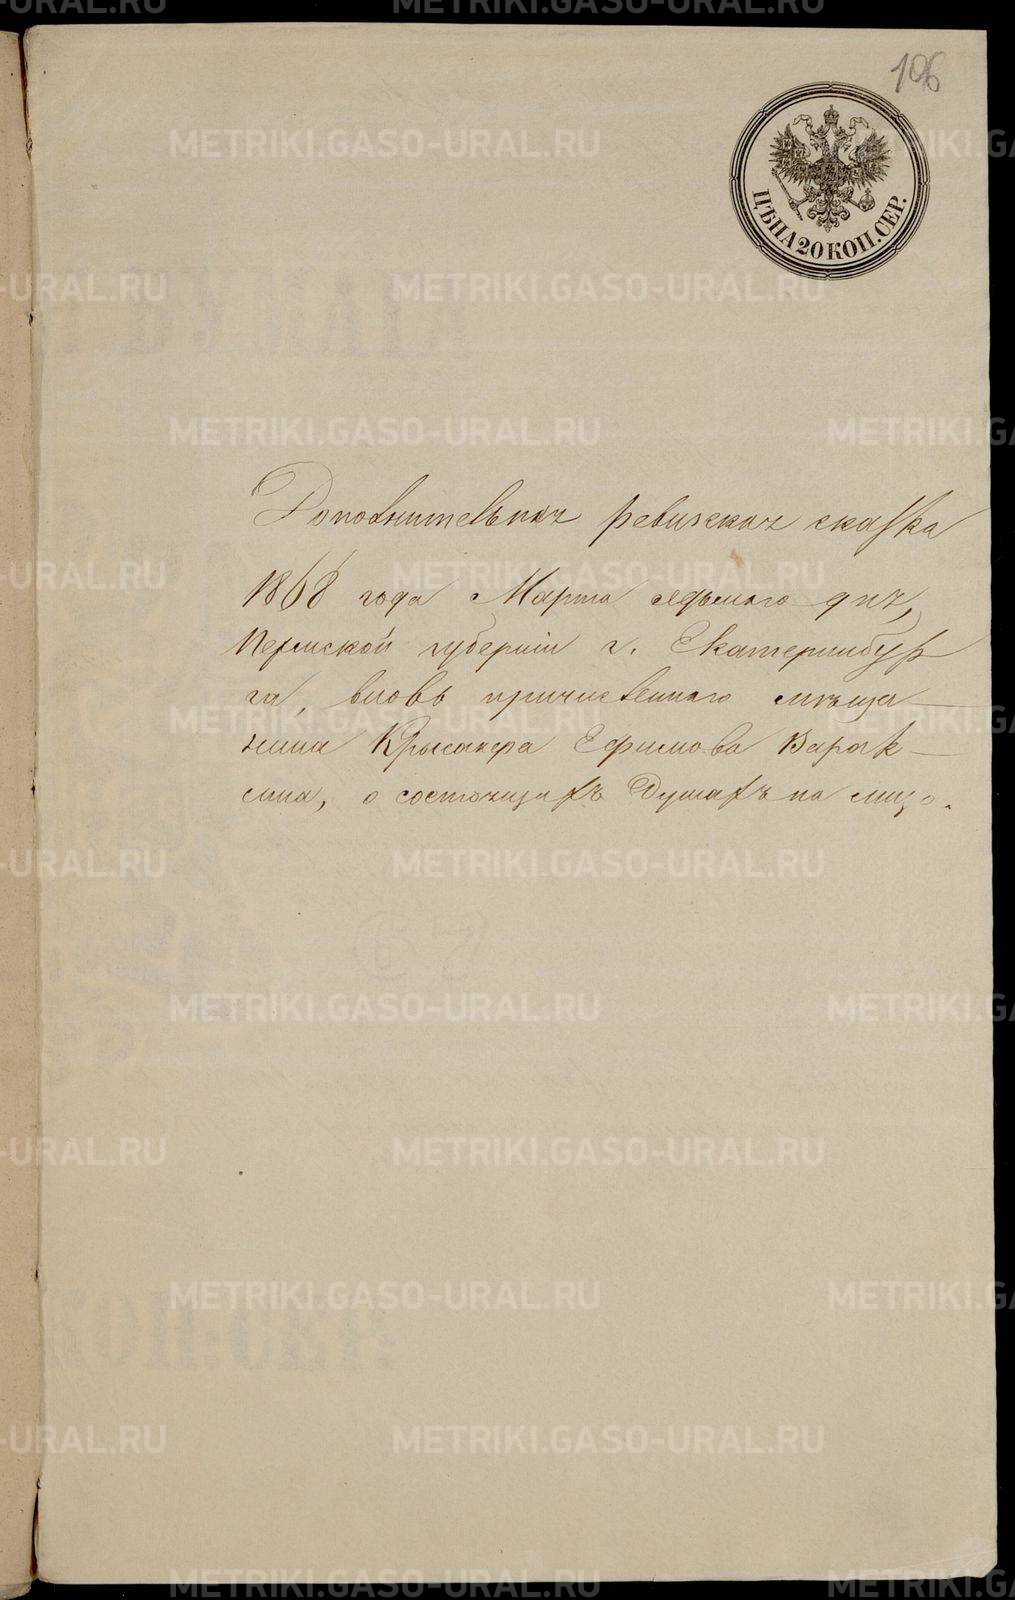 106
ЦѢНА 20 КОП. СЕР.
Дополнительная ревизская сказка
1868 года Марта седьмого дня,
Пермской губерніи г. Екатеринбур
га, вновь причисленного мѣща—
нина Крысанфа Ефимова Варак—
сина, о состоящихъ душахъ на лицо.
METRIKI.GASO-URAL.RU